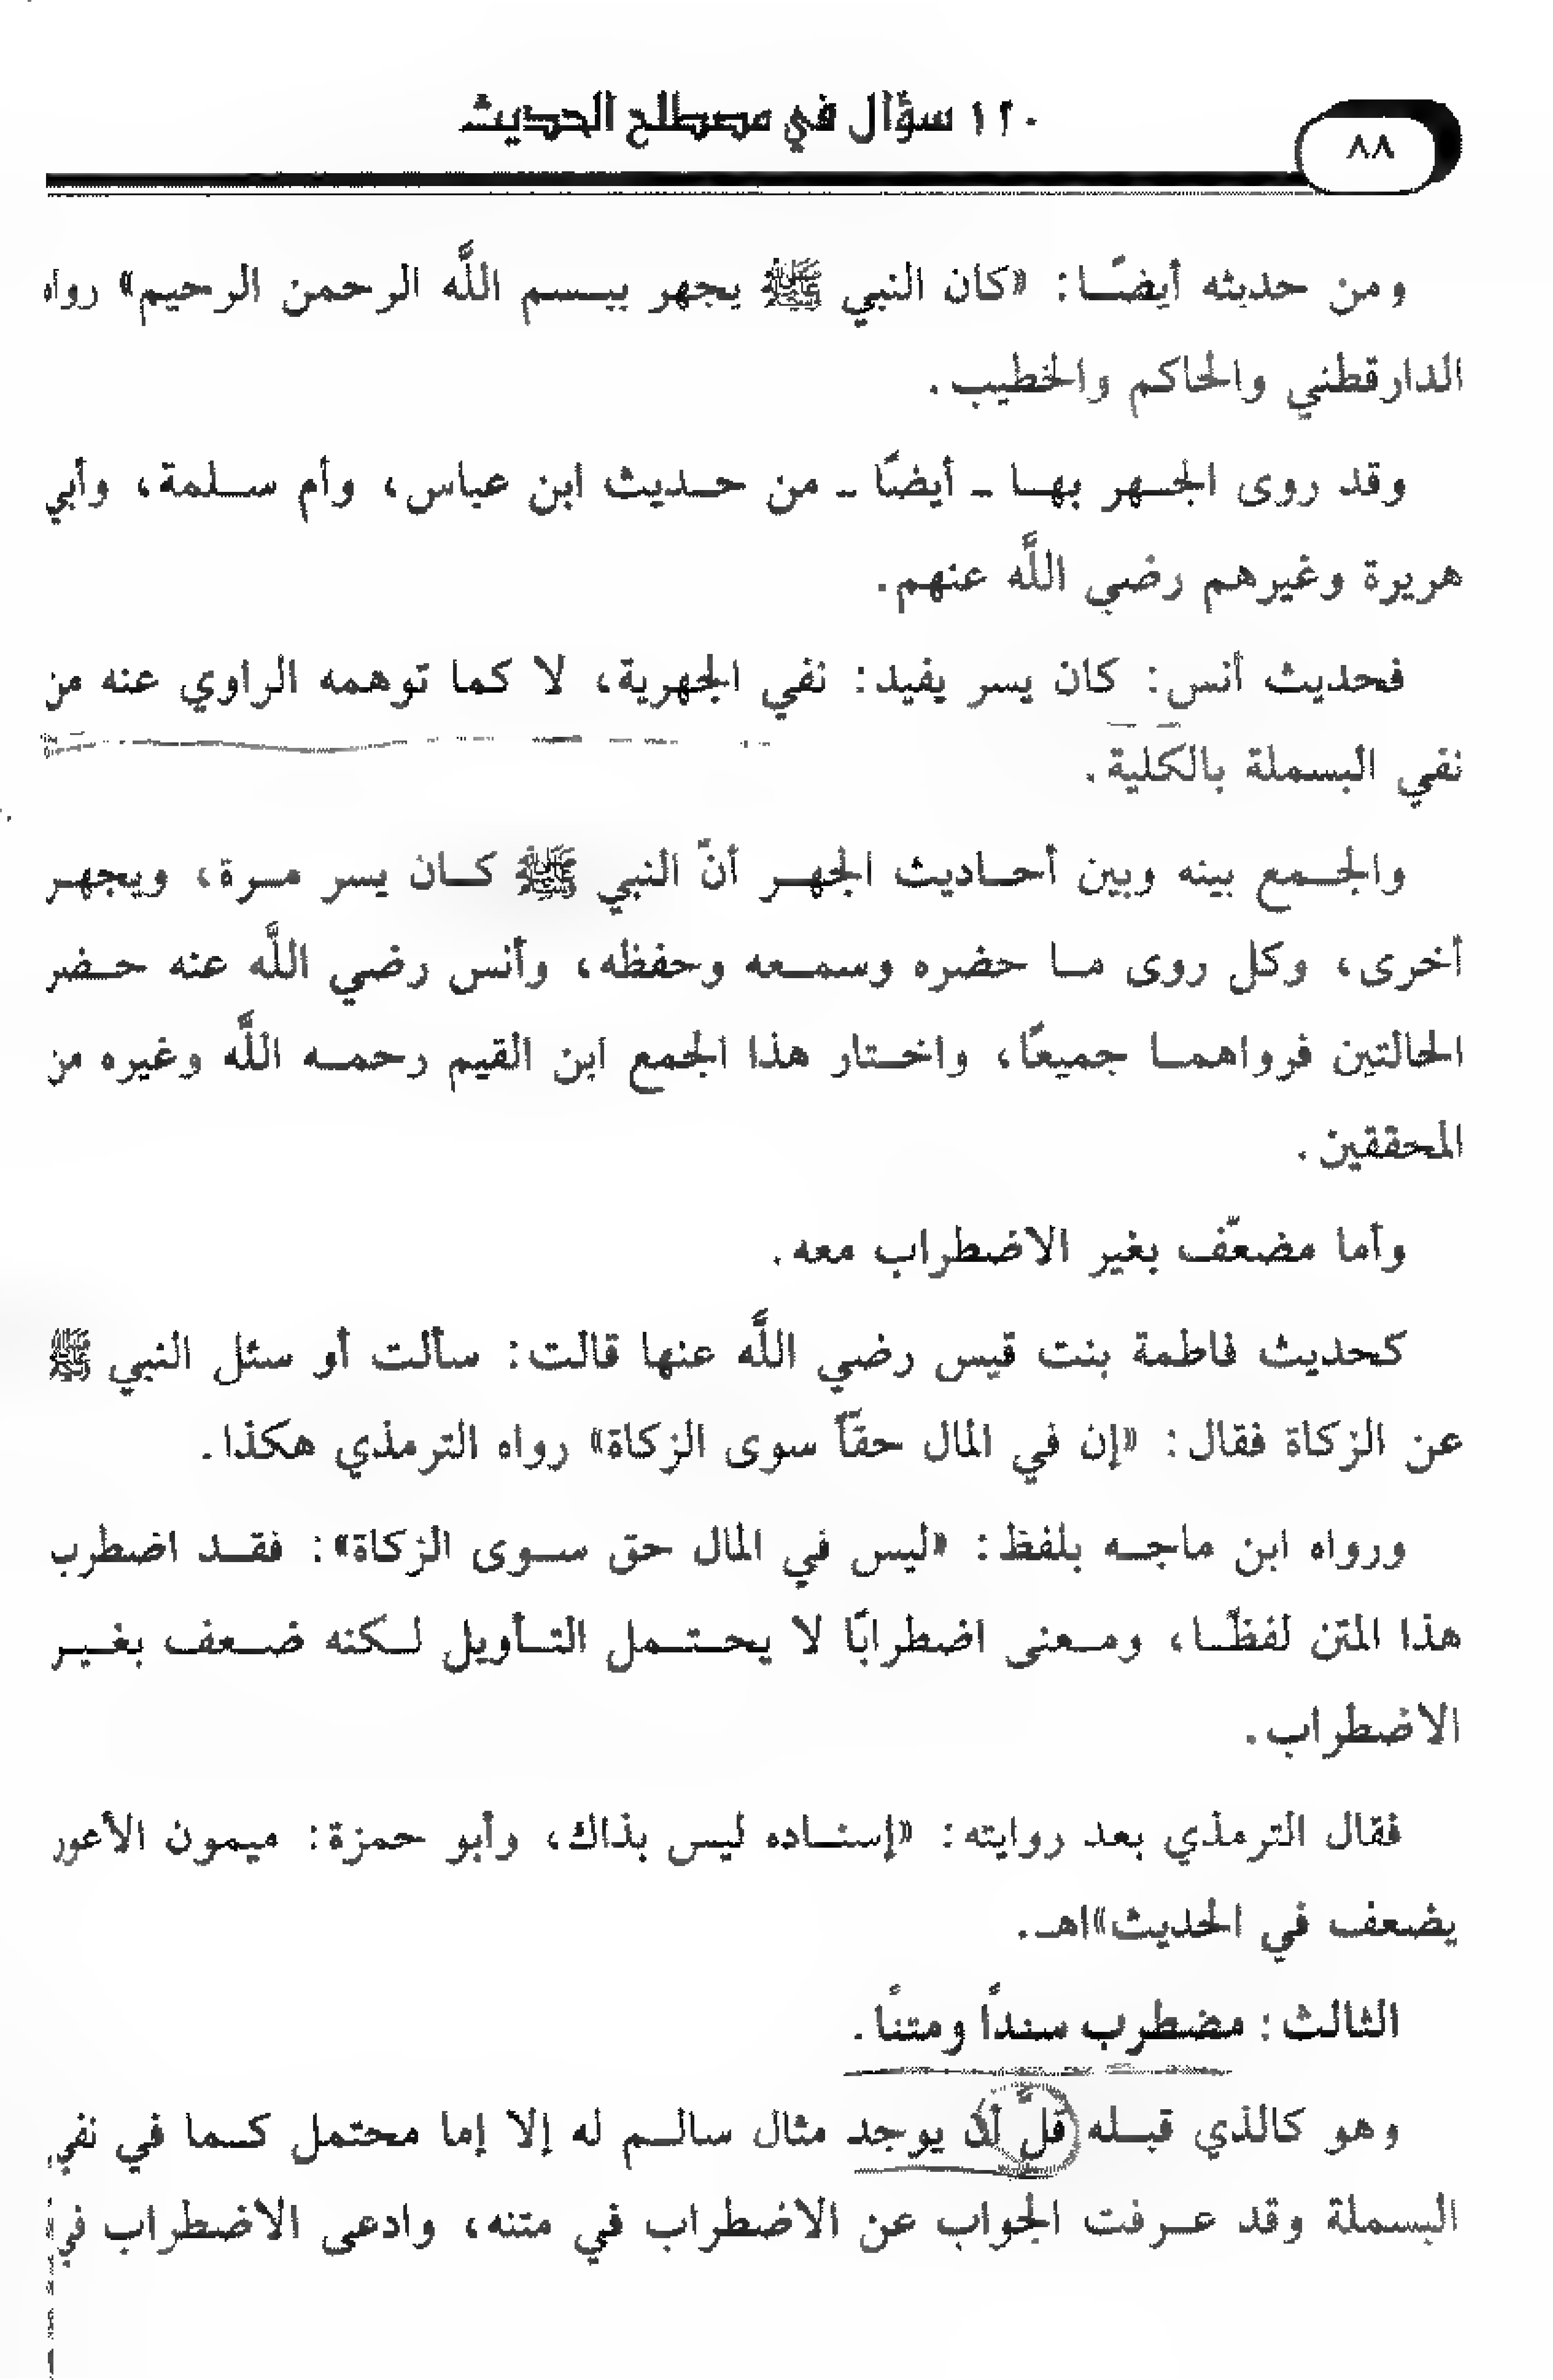 ١٢٠ سؤال في مصطلح الحديث
٨٨
ومن حديثه أيضًا: «كان النبي ﷺ يجهر ببسم اللَّه الرحمن الرحيم» رواه
الدارقطني والحاكم والخطيب.
وقد روى الجهر بها ـ أيضًا ـ من حديث ابن عباس، وأم سلمة، وأبي
هريرة وغيرهم رضي اللَّه عنهم.
فحديث أنس: كان يسر يفيد: نفي الجهرية، لا كما توهمه الراوي عنه من
نفي البسملة بالكلية.
والجمع بينه وبين أحاديث الجهر أنّ النبي ﷺ كان يسر مرة، ويجهر
أخرى، وكل روى ما حضره وسمعه وحفظه، وأنس رضي اللَّه عنه حضر
الحالتين فرواهما جميعًا، واختار هذا الجمع ابن القيم رحمه اللَّه وغيره من
المحققين.
وأما مضعّف بغير الاضطراب معه.
كحديث فاطمة بنت قيس رضي اللَّه عنها قالت: سألت أو سئل النبي ﷺ
عن الزكاة فقال: «إن في المال حقّاً سوى الزكاة» رواه الترمذي هكذا.
ورواه ابن ماجه بلفظ: «ليس في المال حق سوى الزكاة»: فقد اضطرب
هذا المتن لفظًا، ومعنى اضطرابًا لا يحتمل التأويل لكنه ضعف بغير
الاضطراب.
فقال الترمذي بعد روايته: «إسناده ليس بذاك، وأبو حمزة: ميمون الأعور
يضعف في الحديث»اهـ.
الثالث: مضطرب سنداً ومتناً.
وهو كالذي قبله قلّ أن يوجد مثال سالم له إلا إما محتمل كما في نفي
البسملة وقد عرفت الجواب عن الاضطراب في متنه، وادعى الاضطراب في